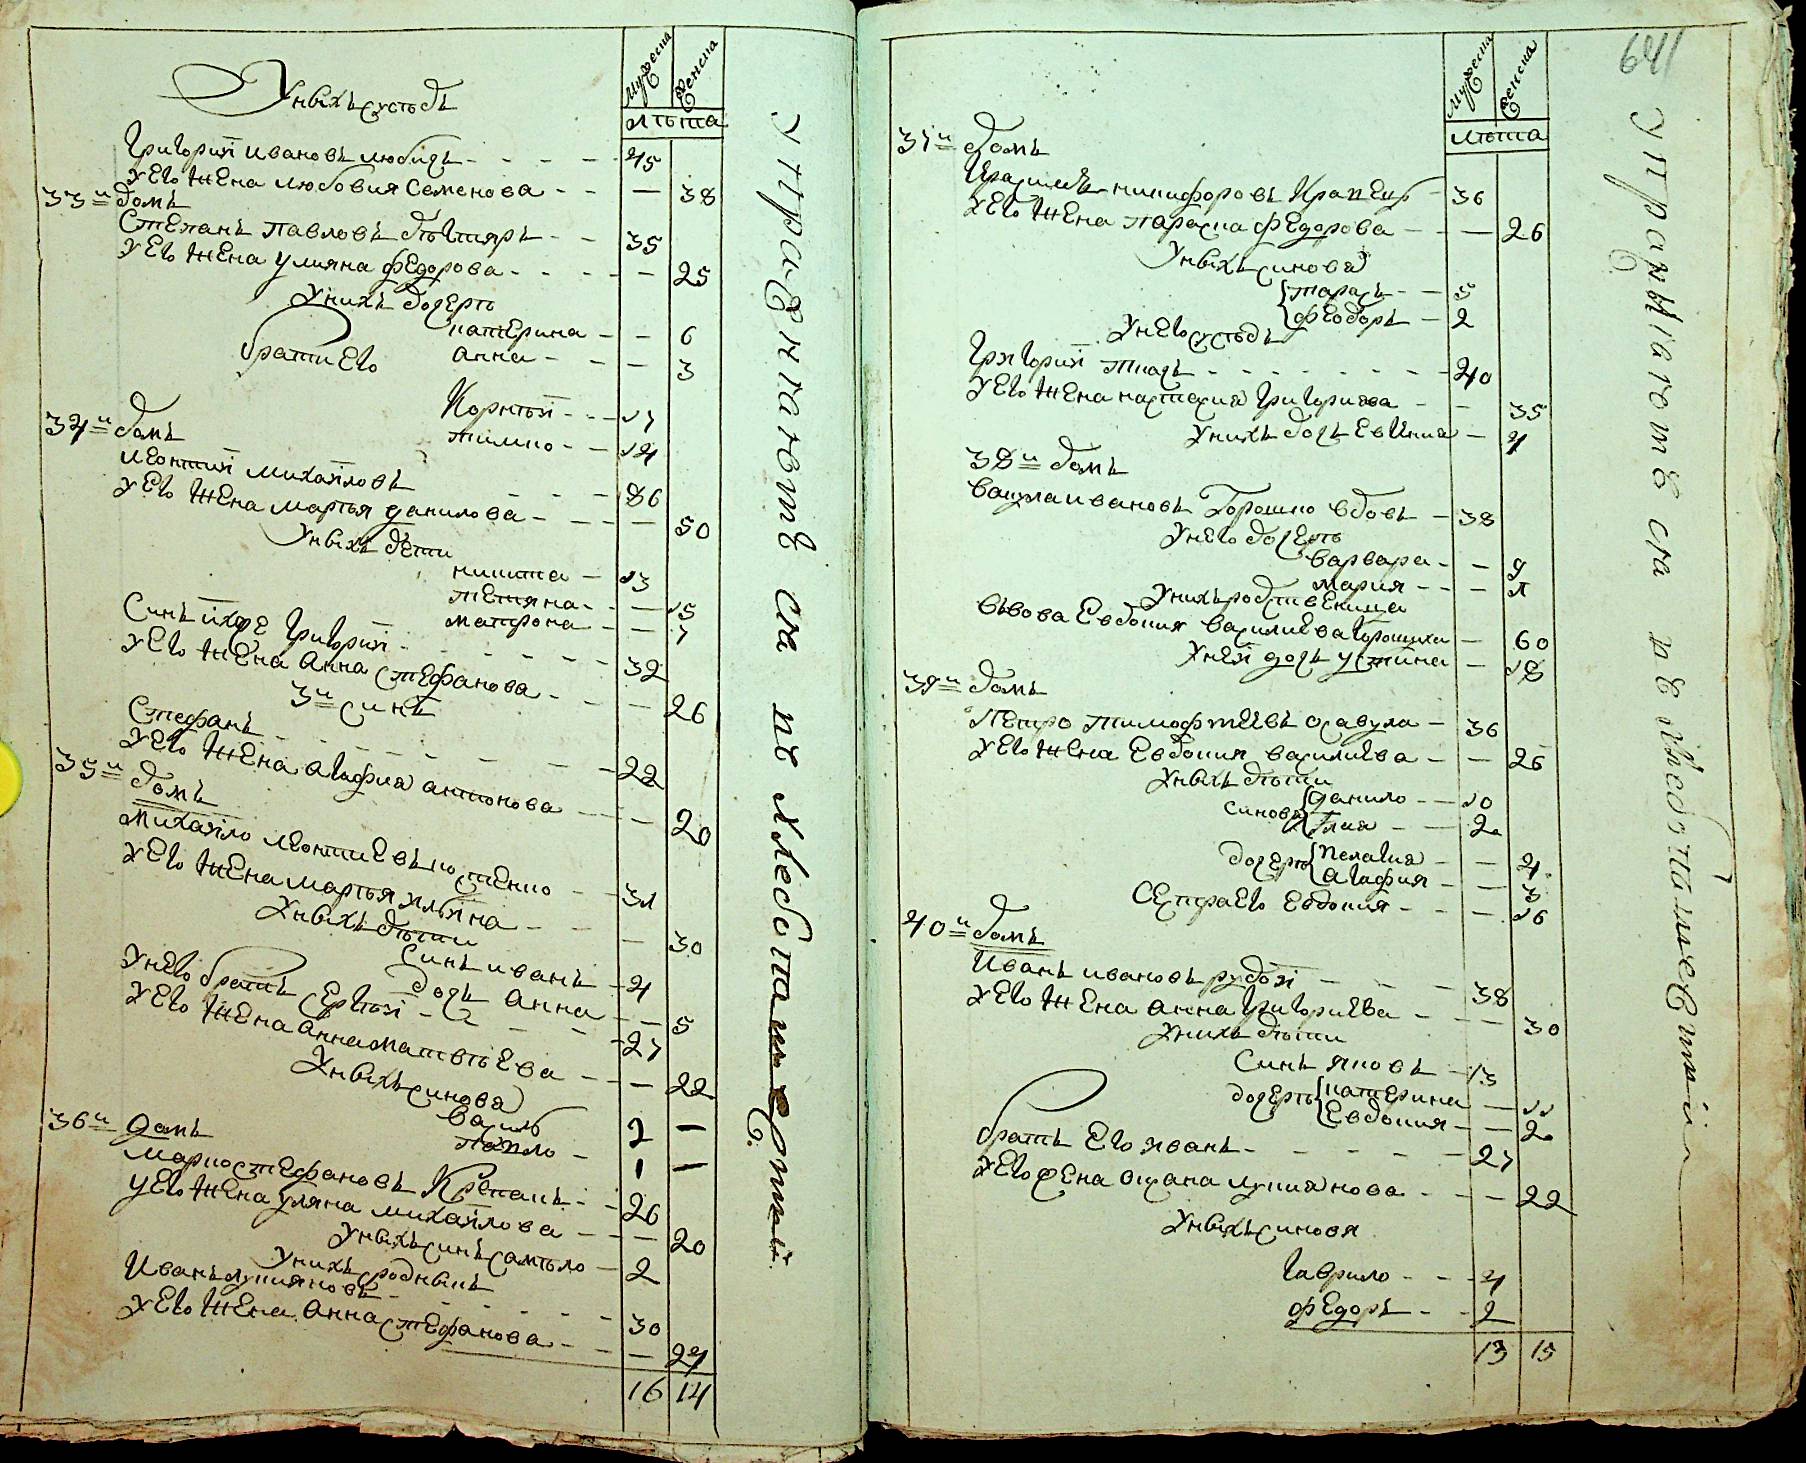 мужеска женска
лѣта
У ныхъ сусѣдъ
Григорий Ивановъ 45
У его жена Любовия Семенова 38
33й домъ
Степанъ Павловъ 35
У его жена Улияна Федорова 25
У нихъ дочерть
катерина 6
анна 3
брати его
Корнѣй 17
тимко 14
34й домъ
Леонтий Михайловъ 86
У его жена Марѳя данилова 50
У ныхъ дети
никита 13
тетяна 15
матрона 7
Синъ ихже Григорий 32
У его жена Анна Стефанова 26
3й синъ
Стефанъ 22
У его жена Агафия антонова 20
35й домъ
Михайло Леонтиевъ 31
У его жена Марѳя 30
У ныхъ дѣти
Синъ иванъ 4
дочъ Анна 5
У него братъ Сергѣй 27
У его жена Анна Матвѣева 22
У ныхъ синова
василь 2 —
павло 1 —
36й домъ
Марко Стефановъ 26
У его жена уляна михайлова 20
У ныхъ синъ самѣло 2
У нихъ родныйъ
Иванъ лукияновъ 30
У его жена Анна Стефанова 24
16 14
Упражняютъ ся въ хлебопашерстий
641
мужеска женска
лѣта
37й домъ
никифоровъ 36
У его жена параска федорова 26
У ныхъ синова
тарасъ 5
феодоръ 2
У него сусѣдъ
Григорий ткачъ 40
У его жена настасия Григориева 35
У нихъ дочъ Евгения 4
38й домъ
Вакула ивановъ Горошко вдовъ 38
У него дочерть
варвара 9
мария
У нихъ родственица
Вдова Евдокия василиева 60
У ней дочъ устина 18
39й домъ
Петро тимофѣевъ 36
У его жена Евдокия василиева 26
У ныхъ дѣти
синова данило 10
Илия 2
дочерть пелагия 4
агафия 3
Сестра его Евдокия 16
40й домъ
Иванъ ивановъ рудой 38
У его жена анна Григориева 30
У нихъ дѣти
Синъ яковъ 13
дочерть катерина 11
Евдокия 2
братъ его иванъ 27
У его жена оксана лукиянова 22
У ныхъ синовя
гаврило 4
федоръ 2
13 15
упражняютъ ся въ хлебопашествии